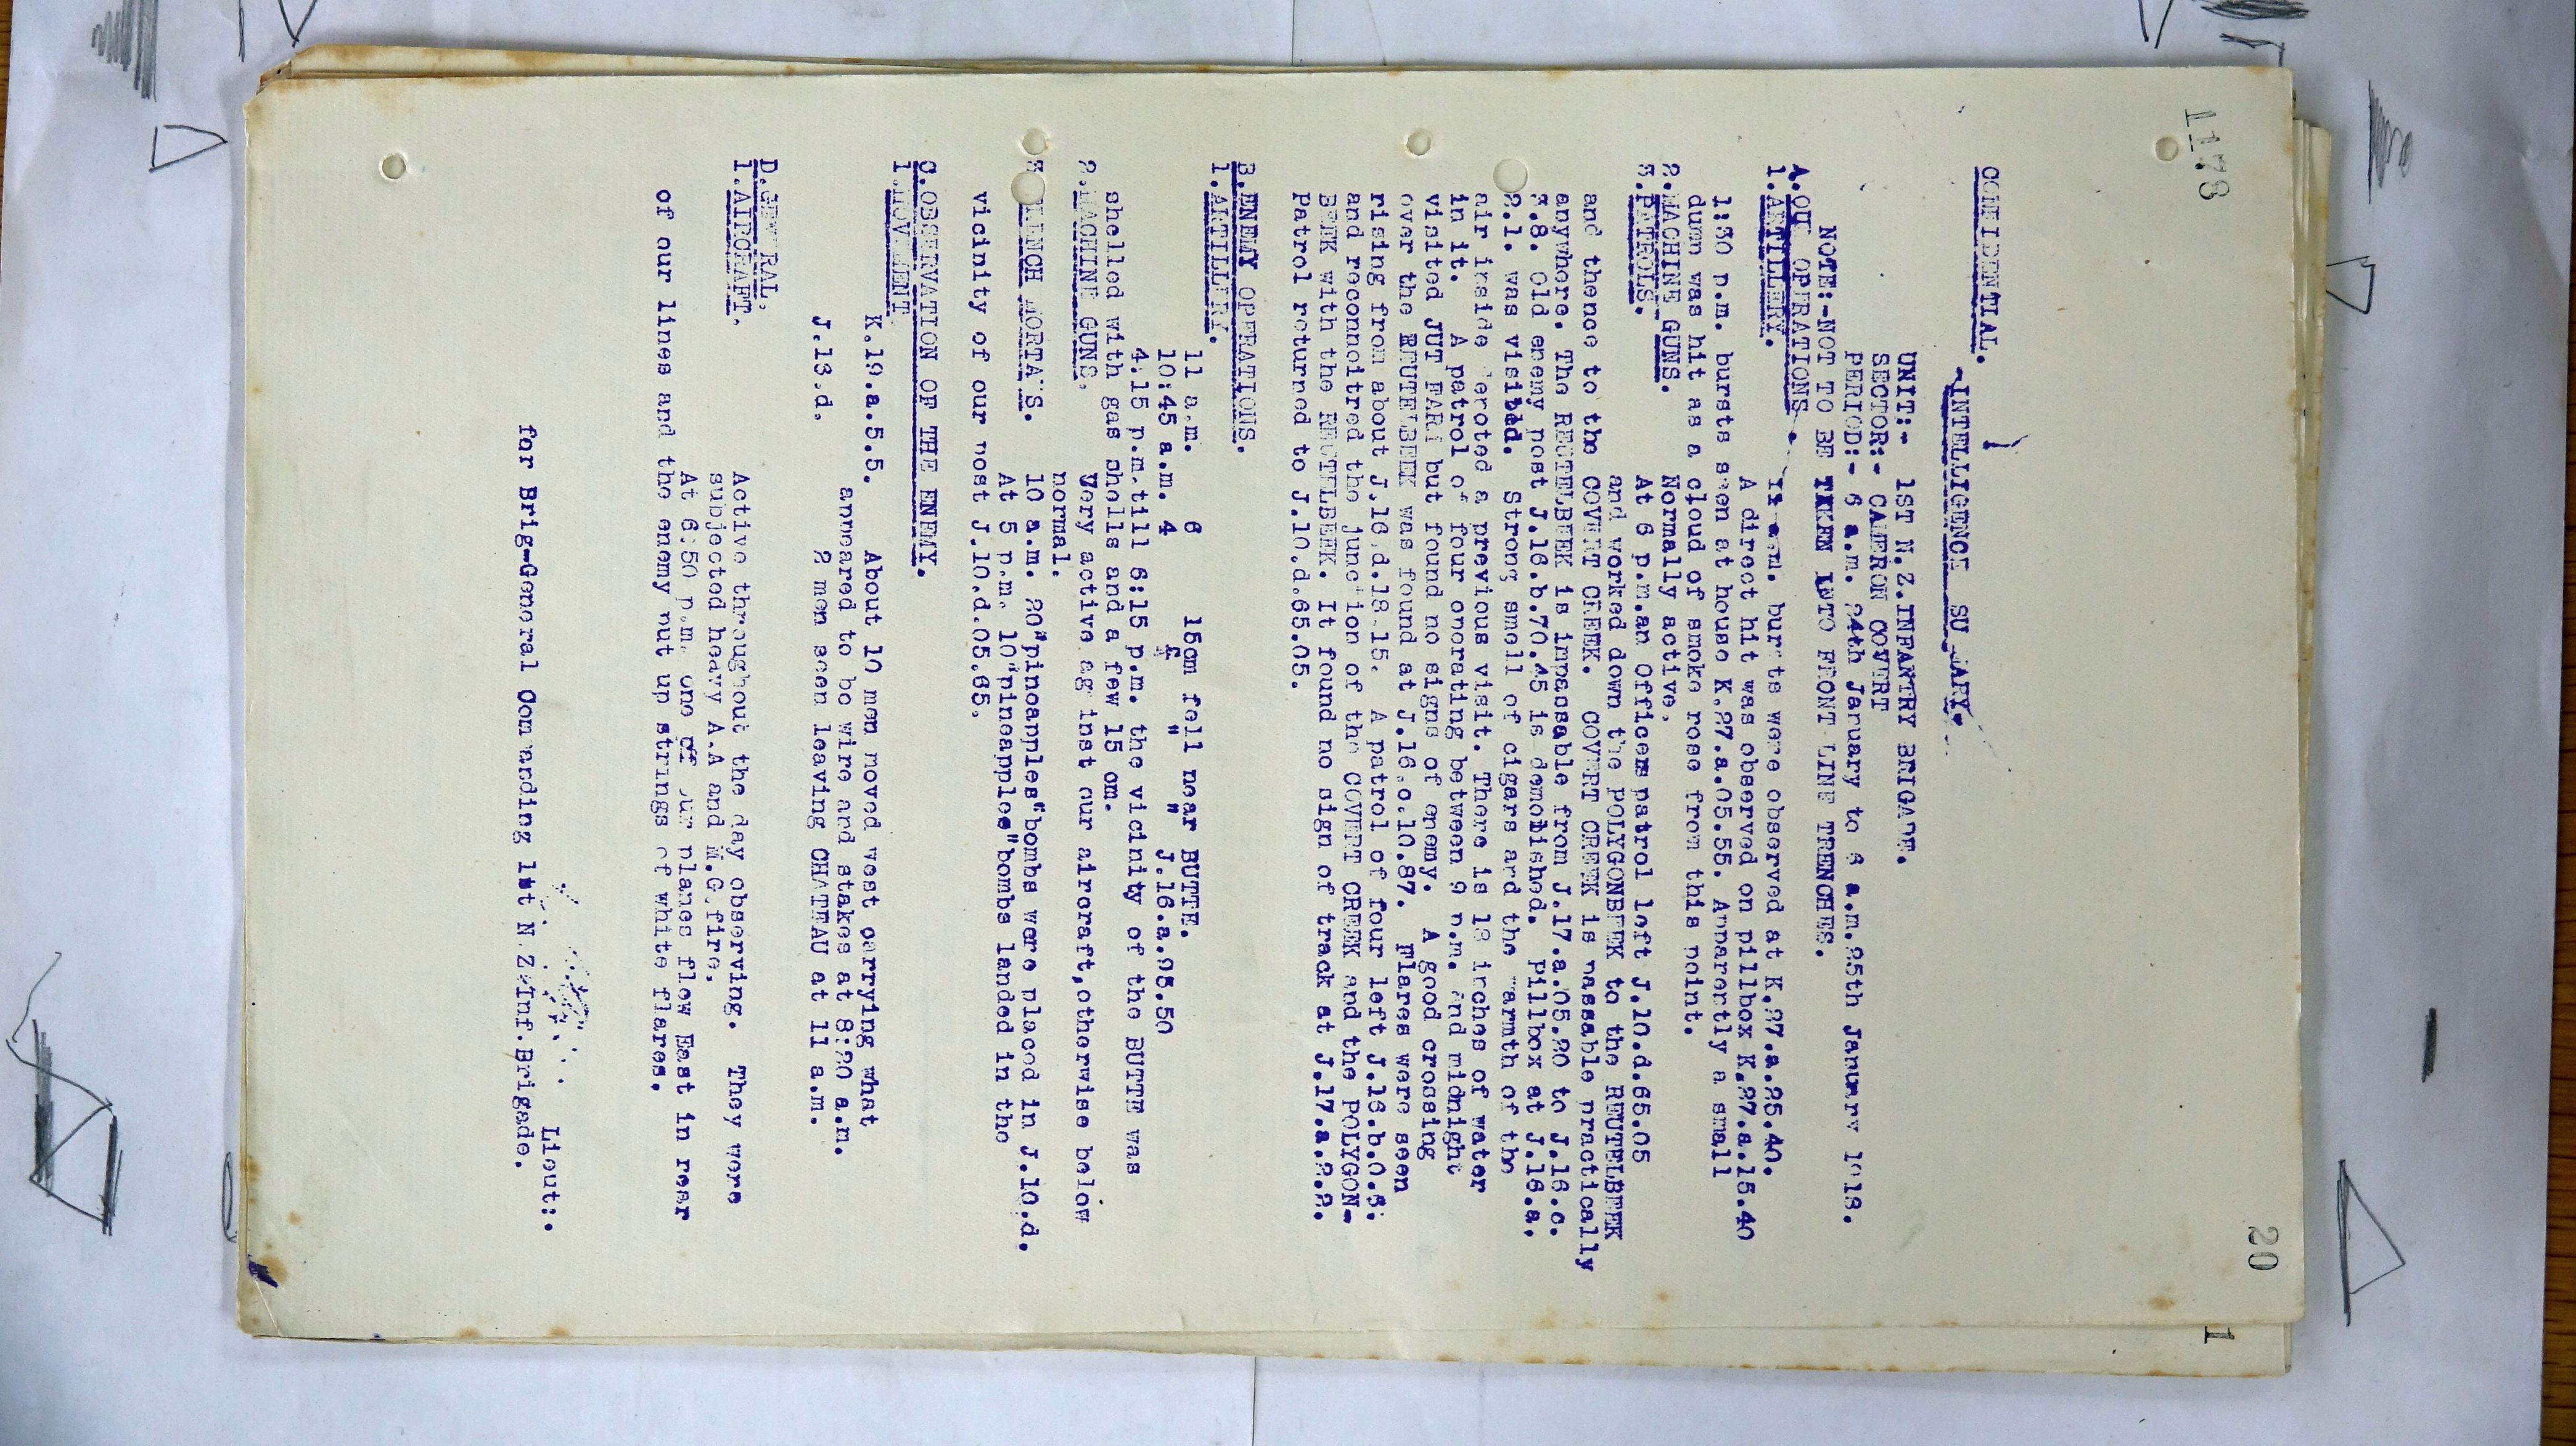 1178
20
CONFIDENTIAL.
-INTELLIGENCE SU MARY.
UNIT:- 1ST N.Z.INFANTRY BRIGADE.
SECTOR:- CAMERON COVERT
PERIOD:- 6 a.m. 24th January to 6 a.m.25th January 1918.
NOTE:-NOT TO BE TAKEN INTO FRONT LINE TRENCHES.
A.OU OPERATIONS.
1.ARTILLERY. a.m. bursts were observed at K.27.a.25.40.
A direct hit was observed on pillbox K.27.a.15.40
1:30 p.m. bursts seen at house K.27.a.05.55. Apparently a small
dump was hit as a cloud of smoke rose from this point.
2.MACHINE GUNS. Normally active.
3.PATROLS. At 6 p.m.an Officers patrol left J.10.d.65.05
and worked down the POLYGONBEEK to the REUTELBEEK
and thence to the COVERT CREEK. COVERT CREEK is passable practically
anywhere. The REUTELBEEK is impassable from J.17.a.05.20 to J.16.c.
3.8. Old enemy post J.16.b.70.45 is demolished. Pillbox at J.16.a.
2.1. was visited. Strong smell of cigars and the warmth of the
air inside denoted a previous visit. There is 18 inches of water
in it. A patrol of four operating between 9 p.m. and midnight
visited JUT FARM but found no signs of enemy. A good crossing
over the REUTELBEEK was found at J.16.c.10.87. Flares were seen
rising from about J.16.d.18.15. A patrol of four left J.16.b.0.5:
and reconnoitred the junction of the COVERT CREEK and the POLYGON-
BEEK with the REUTELBEEK. It found no sign of track at J.17.a.2.2.
Patrol returned to J.10.d.65.05.
B.ENEMY OPERATIONS.
1.ARTILLERY.
11 a.m. 6 15cm fell near BUTTE.
10:45 a.m. 4 " " J.16.a.95.50
4:15 p.m.till 6:15 p.m. the vicinity of the BUTTE was
shelled with gas shells and a few 15 cm.
2.MACHINE GUNS. Very active against our aircraft,otherwise below
normal.
3 TRENCH MORTARS. 10 a.m. 20"pineapples"bombs were placed in J.10.d.
At 5 p.m. 10"pineapples"bombs landed in the
vicinity of our post J.10.d.05.65.
C.OBSERVATION OF THE ENEMY.
1.MOVEMENT
K.19.a.5.5. About 10 men moved west carrying what
appeared to be wire and stakes at 8:20 a.m.
J.13.d. 2 men seen leaving CHATEAU at 11 a.m.
D.GENERAL.
1.AIRCRAFT. Active throughout the day observing. They were
subjected heavy A.A and M.G.fire.
At 6:50 p.m. one of our planes flew East in rear
of our lines and the enemy put up strings of white flares.
Lieut:.
for Brig-General Commanding 1st N.Z.Inf.Brigade.
1